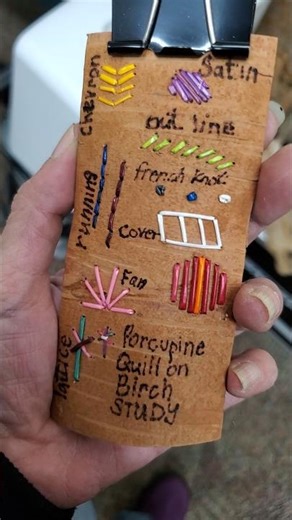 chevron
Satin
out line
french knot
running
Cover
Fan
lattice
Porcupine
Quill on
Birch
STUDY